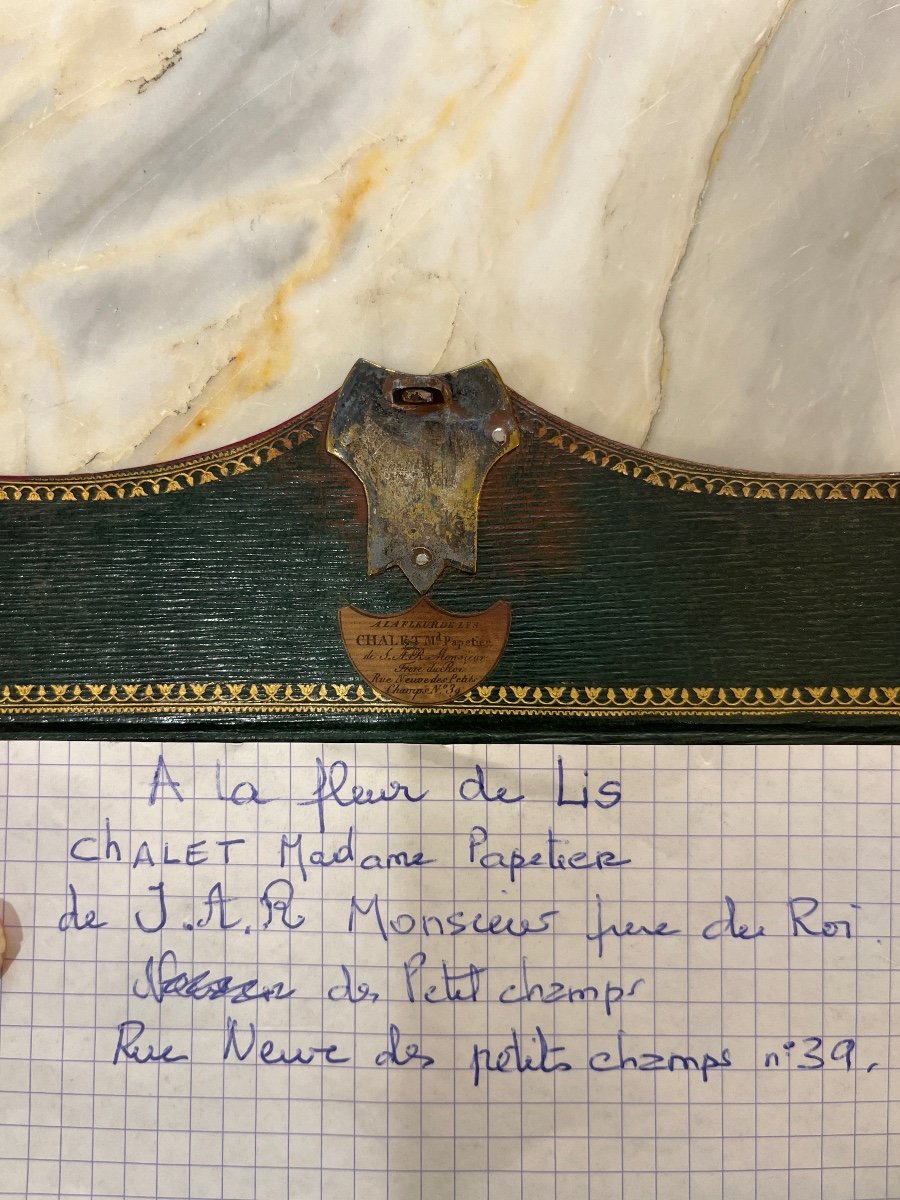 A LA FLEUR DE LYS
CHALET Md Papetier
de S. A. R. Monsieur
Frere du Roi
Rue Neuve des Petits
Champs N.º 39
A la fleur de Lis
ChALET Madame Papetier
de J.A.R Monsieur frere du Roi.
des Petit champs
Rue Neuve des petits champs n° 39.